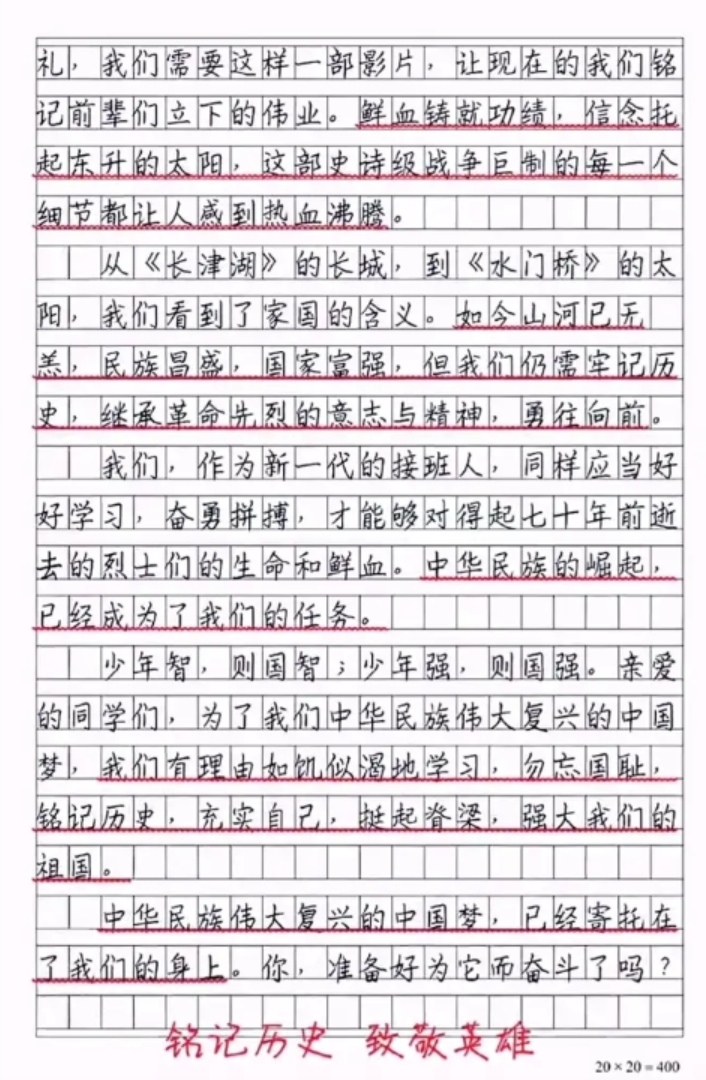 礼，我们需要这样一部影片，让现在的我们铭
记前辈们立下的伟业。鲜血铸就功绩，信念托
起东升的太阳，这部史诗级战争巨制的每一个
细节都让人感到热血沸腾。
从《长津湖》的长城，到《水门桥》的太
阳，我们看到了家国的含义。如今山河已无
恙，民族昌盛，国家富强，但我们仍需牢记历
史，继承革命先烈的意志与精神，勇往向前。
我们，作为新一代的接班人，同样应当好
好学习，奋勇拼搏，才能够对得起七十年前逝
去的烈士们的生命和鲜血。中华民族的崛起，
已经成为了我们的任务。
少年智，则国智；少年强，则国强。亲爱
的同学们，为了我们中华民族伟大复兴的中国
梦，我们有理由如饥似渴地学习，勿忘国耻，
铭记历史，充实自己，挺起脊梁，强大我们的
祖国。
中华民族伟大复兴的中国梦，已经寄托在
了我们的身上。你，准备好为它而奋斗了吗？
铭记历史 致敬英雄
20×20=400